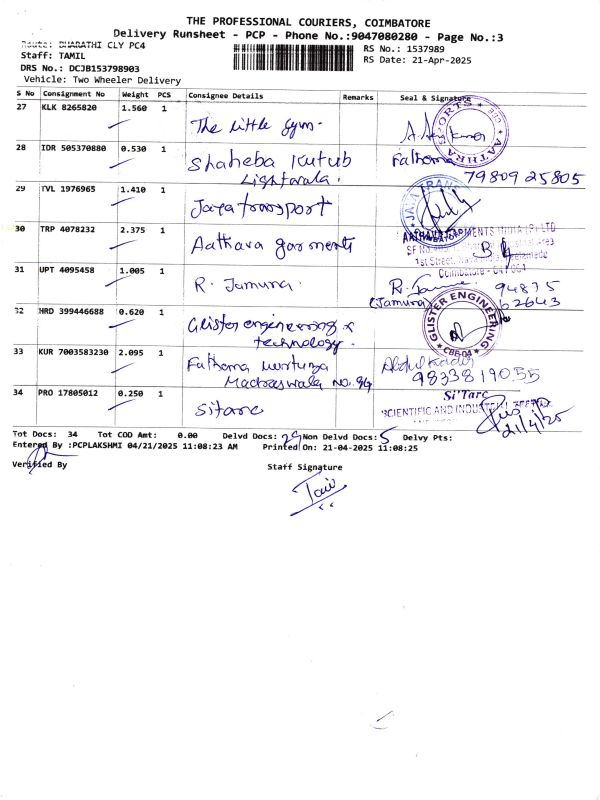 THE PROFESSIONAL COURIERS, COIMBATORE
Delivery Runsheet - PCP - Phone No.:9047080280 - Page No.:3
Route: BHARATHI CLY PC4
RS No.: 1537989
Staff: TAMIL
RS Date: 21-Apr-2025
DRS No.: DCJB153798903
Vehicle: Two Wheeler Delivery
S No Consignment No Weight PCS Consignee Details Remarks Seal & Signature
27 KLK 8265820 1.560 1 The little gym.
28 IDR 505370880 0.530 1 Shaheba Kutub Fathema
Lightwala. 79809 25805
29 TVL 1976965 1.410 1 Jaya transport
JAYA TRANS
30 TRP 4078232 2.375 1 Aathava garments
Coimbatore
31 UPT 4095458 1.005 1 R. Jamuna. R. 94875
(Jamuna) 62643
32 HRD 399446688 0.620 1 Glister engineering & GLISTER ENGINEERING
technology. CBE-04
33 KUR 7003583230 2.095 1 Fathema Murtuza Abdulkadir
Madraswala No. 94 98338 19055
34 PRO 17805012 0.250 1 Sitarc Si'Tarc
SCIENTIFIC AND INDUSTRIAL
21/4/25
Tot Docs: 34 Tot COD Amt: 0.00 Delvd Docs: 29 Non Delvd Docs: 5 Delvy Pts:
Entered By :PCPLAKSHMI 04/21/2025 11:08:23 AM Printed On: 21-04-2025 11:08:25
Verified By Staff Signature